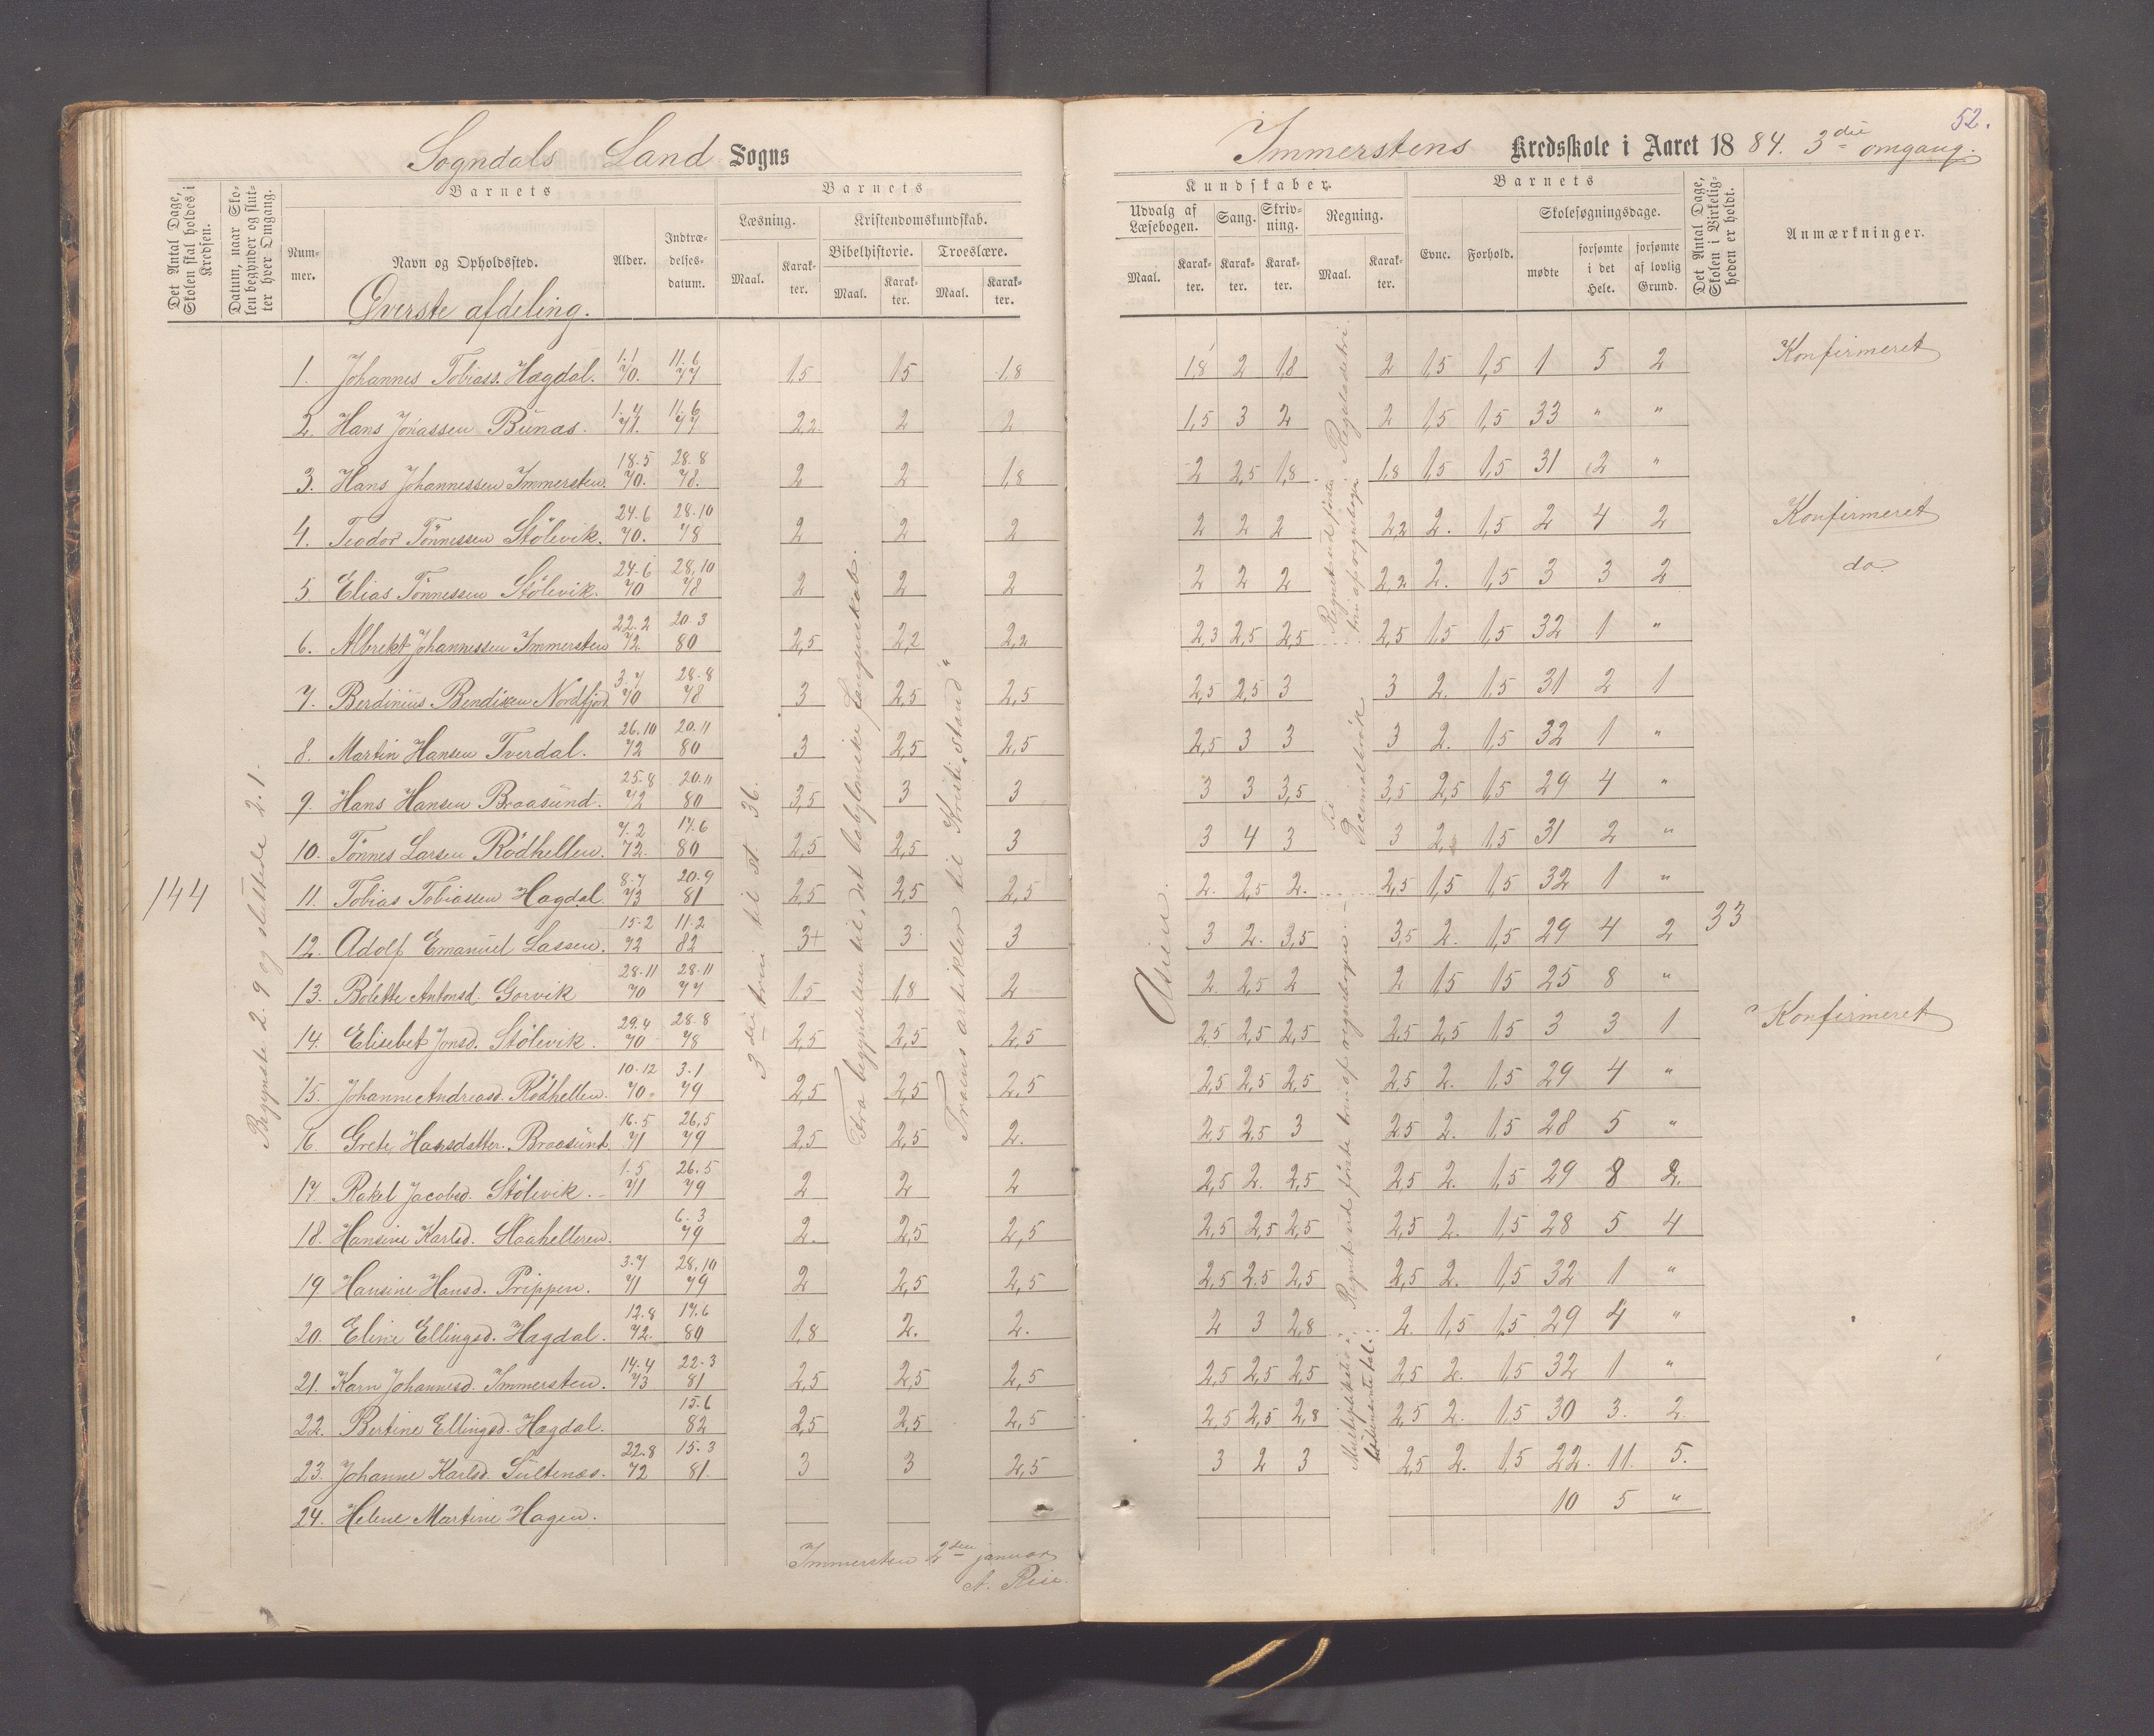 Sogndals Land Sogns
Det Antal Dage, Skolen skal holdes i Kredsen.
Datum, naar Skolen begynder og slutter hver Omgang.
Barnets
Nummer.
Navn og Opholdssted.
Alder.
Indtrædelsesdatum.
Barnets
Læsning.
Kristendomskundskab.
Maal.
Karakter.
Bibelhistorie.
Troeslære.
Maal. Karakter. Maal. Karakter.
Øverste afdeling.
144
Begyndte 2. 9 og sluttede 2. 1.
3die trin til st. 36.
Fra begyndelsen til „det babyloniske Fangenskab.
Troens artikler til Kristi „stand"
1. Johannes Tobiass. Hagdal. 1.1 70. 11.6 77 1,5 1,5 1,8
2. Hans Jonassen Bunæs. 1.7 71. 11.6 77 2,2 2 2
3. Hans Johannessen Immersten. 18.5 70. 28.8 78. 2 2 1,8
4. Teodor Tönnessen Stölevik. 24.6 70. 28.10 78 2 2 2
5. Elias Tönnessen Stölevik. 24.6 70 28.10 78 2 2 2
6. Albrekt Johannessen Immersten 22.2 72. 20.3 80 2,5 2,2 2,2
7. Berdinius Bendixen Nordfjord 3.7 70 28.8 78 3 2,5 2,5
8. Martin Hansen Tverdal. 26.10 72 20.11 80 3 2,5 2,5
9. Hans Hansen Braasund. 25.8 72 20.11 80 3,5 3 3
10. Tönnes Larsen Rödhellen. 7.2 72. 17.6 80 2,5 2,5 3
11. Tobias Tobiassen Hagdal. 8.7 73 20.9 81 2,5 2,5 2,5
12. Adolf Emanuel Lassen. 15.2 72 11.2 82 3+ 3 3
13. Bolette Antonsd. Gorvik 28.11 70 28.11 77 1,5 1,8 2
14. Elisebet Jonsd. Stölevik. 29.4 70 28.8 78 2,5 2,5 2,5
15. Johanne Andreasd. Rödhellen. 10.12 70. 3.1 79 2,5 2,5 2,5
16. Grete Hansdatter. Braasund. 16.5 71 26.5 79 2,5 2,5 2.
17. Rakel Jacobsd. Stölevik. 1.5 71 26.5 79 2 2 2
18. Hansine Karlsd. Staahelleren. 6.3 79 2. 2,5 2,5
19 Hansine Hansd. Prippen. 3.7 71 28.10 79 2 2,5 2,5
20. Eline Ellingsd. Hagdal. 12.8 72. 17.6 80 1,8 2. 2.
21. Karn Johannesd. Immersten. 14.4 73 22.3 81 2,5 2,5 2,5
22. Bertine Ellingsd. Hagdal. 15.6 82 2,5 2,5 2,5
23. Johanne Karlsd. Sultenæs. 22.8 72 15.3 81. 3 3 2,5
24. Helene Martine Hagen.
Immersten 2den januar
A. Reie.
52.
Immerstens Kredsskole i Aaret 1884. 3die omgang.
Kundskaber.
Udvalg af Læsebogen.
Sang.
Skrivning.
Regning.
Maal. Karakter. Karakter. Karakter. Maal. Karakter.
Barnets
Evne.
Forhold.
Skolesøgningsdage.
mødte
forsømte i det Hele.
forsømte af lovlig Grund.
Det Antal Dage, Skolen i Virkeligheden er holdt.
Anmærkninger.
Asien.
Regnet ud første trin af regnebogen. Reguladetri.
Til Decimalbrøk
Regnet ud første trin af regnebogen.
Multiplikation i
33
1,8 2 1,8 2 1,5 1,5 1 5 2 Konfirmeret
1,5 3 2 2 1,5 1,5 33 " "
2 2,5 1,8 1,8 1,5 1,5 31 2 "
2 2 2 2,2 2. 1,5 2 4 2 Konfirmeret
2 2 2 2,2 2. 1,5 3 3 2 do.
2,3 2,5 2,5 2,5 1,5 1,5 32 1 "
2,5 2,5 3 3 2. 1,5 31 2 1
2,5 3 3 3 2. 1,5 32 1 "
3 3 3,5 3,5 2,5 1,5 29 4 "
3 4 3 3 2. 1,5 31 2 "
2. 2,5 2. 2,5 1,5 1,5 32 1 "
3 2. 3,5 3,5 2. 1,5 29 4 2
2 2,5 2 2 1,5 1,5 25 8 "
2,5 2,5 2,5 2,5 2,5 1,5 3 3 1 Konfirmeret
2,5 2,5 2,5 2,5 2. 1,5 29 4 "
2,5 2,5 3 2,5 2. 1,5 28 5 "
2,5 2. 2,5 2,5 2. 1,5 29 8 2.
2,5 2,5 2,5 2,5 2. 1,5 28 5 4
2,5 2,5 2,5 2,5 2. 1,5 32 1 "
2 3 2,8 2. 1,5 1,5 29 4 "
2,5 2,5 2,5 2,5 2. 1,5 32 1 "
2,5 2,5 2,8 2,5 2. 1,5 30 3. 2.
3 2 3 2,5 2. 1,5 22. 11. 5.
10 5 "